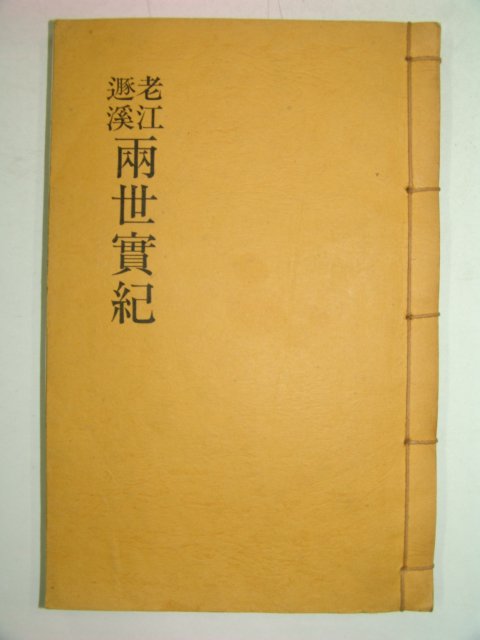 老江
遯溪
兩世實紀